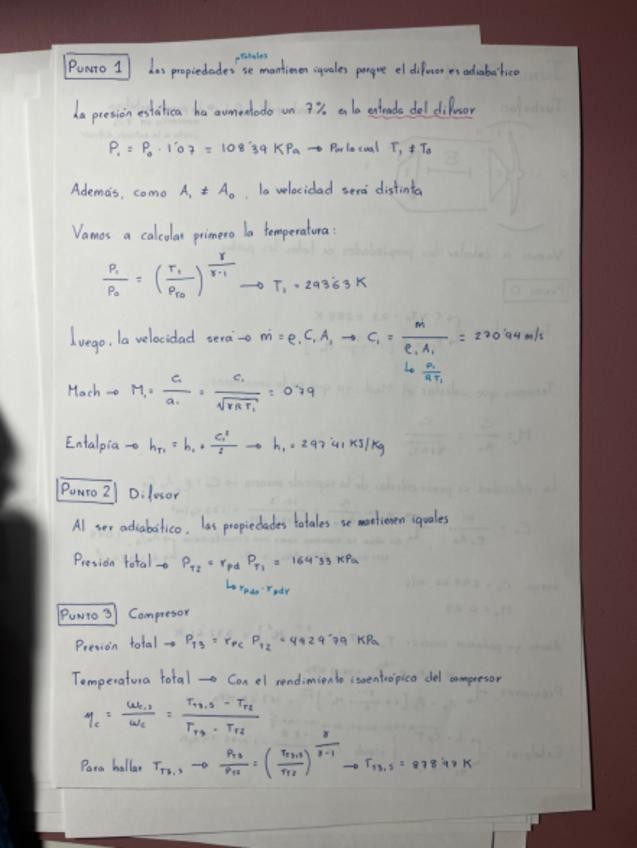 PUNTO 1 Las propiedades totales se mantienen iguales porque el difusor es adiabático
La presión estática ha aumentado un 7% en la entrada del difusor
P₁ = P₀ · 1'07 = 108'39 KPa → Por lo cual T₁ ≠ T₀
Además, como A₁ ≠ A₀, la velocidad será distinta
Vamos a calcular primero la temperatura:
P₁/P₀ = (T₁/P_T0)^(γ/γ-1) → T₁ = 293'63 K
Luego, la velocidad será → ṁ = ρ₁ C₁ A₁ → C₁ = ṁ/(ρ₁ A₁) = 270'94 m/s
↳ P₁/(R T₁)
Mach → M₁ = C₁/a₁ = C₁/√(γRT₁) = 0'79
Entalpía → h_T1 = h₁ + C₁²/2 → h₁ = 297'41 KJ/Kg
PUNTO 2 Difusor
Al ser adiabático, las propiedades totales se mantienen iguales
Presión total → P_T2 = r_pd P_T1 = 164'33 KPa
↳ r_pdo · r_pdr
PUNTO 3 Compresor
Presión total → P_T3 = r_pc P_T2 = 4929'79 KPa
Temperatura total → Con el rendimiento isoentrópico del compresor
η_c = ω_c,s/ω_c = (T_T3,s - T_T2)/(T_T3 - T_T2)
Para hallar T_T3,s → P_T3/P_T2 = (T_T3,s/T_T2)^(γ/γ-1) → T_T3,s = 878'97 K